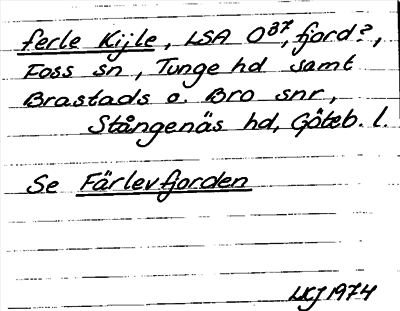 ferle Kijle, LSA O37, fjord?,
Foss sn, Tunge hd samt
Brastads o. Bro snr,
Stångenäs hd, Göteb. l.
Se Färlevfjorden
LKJ 1974